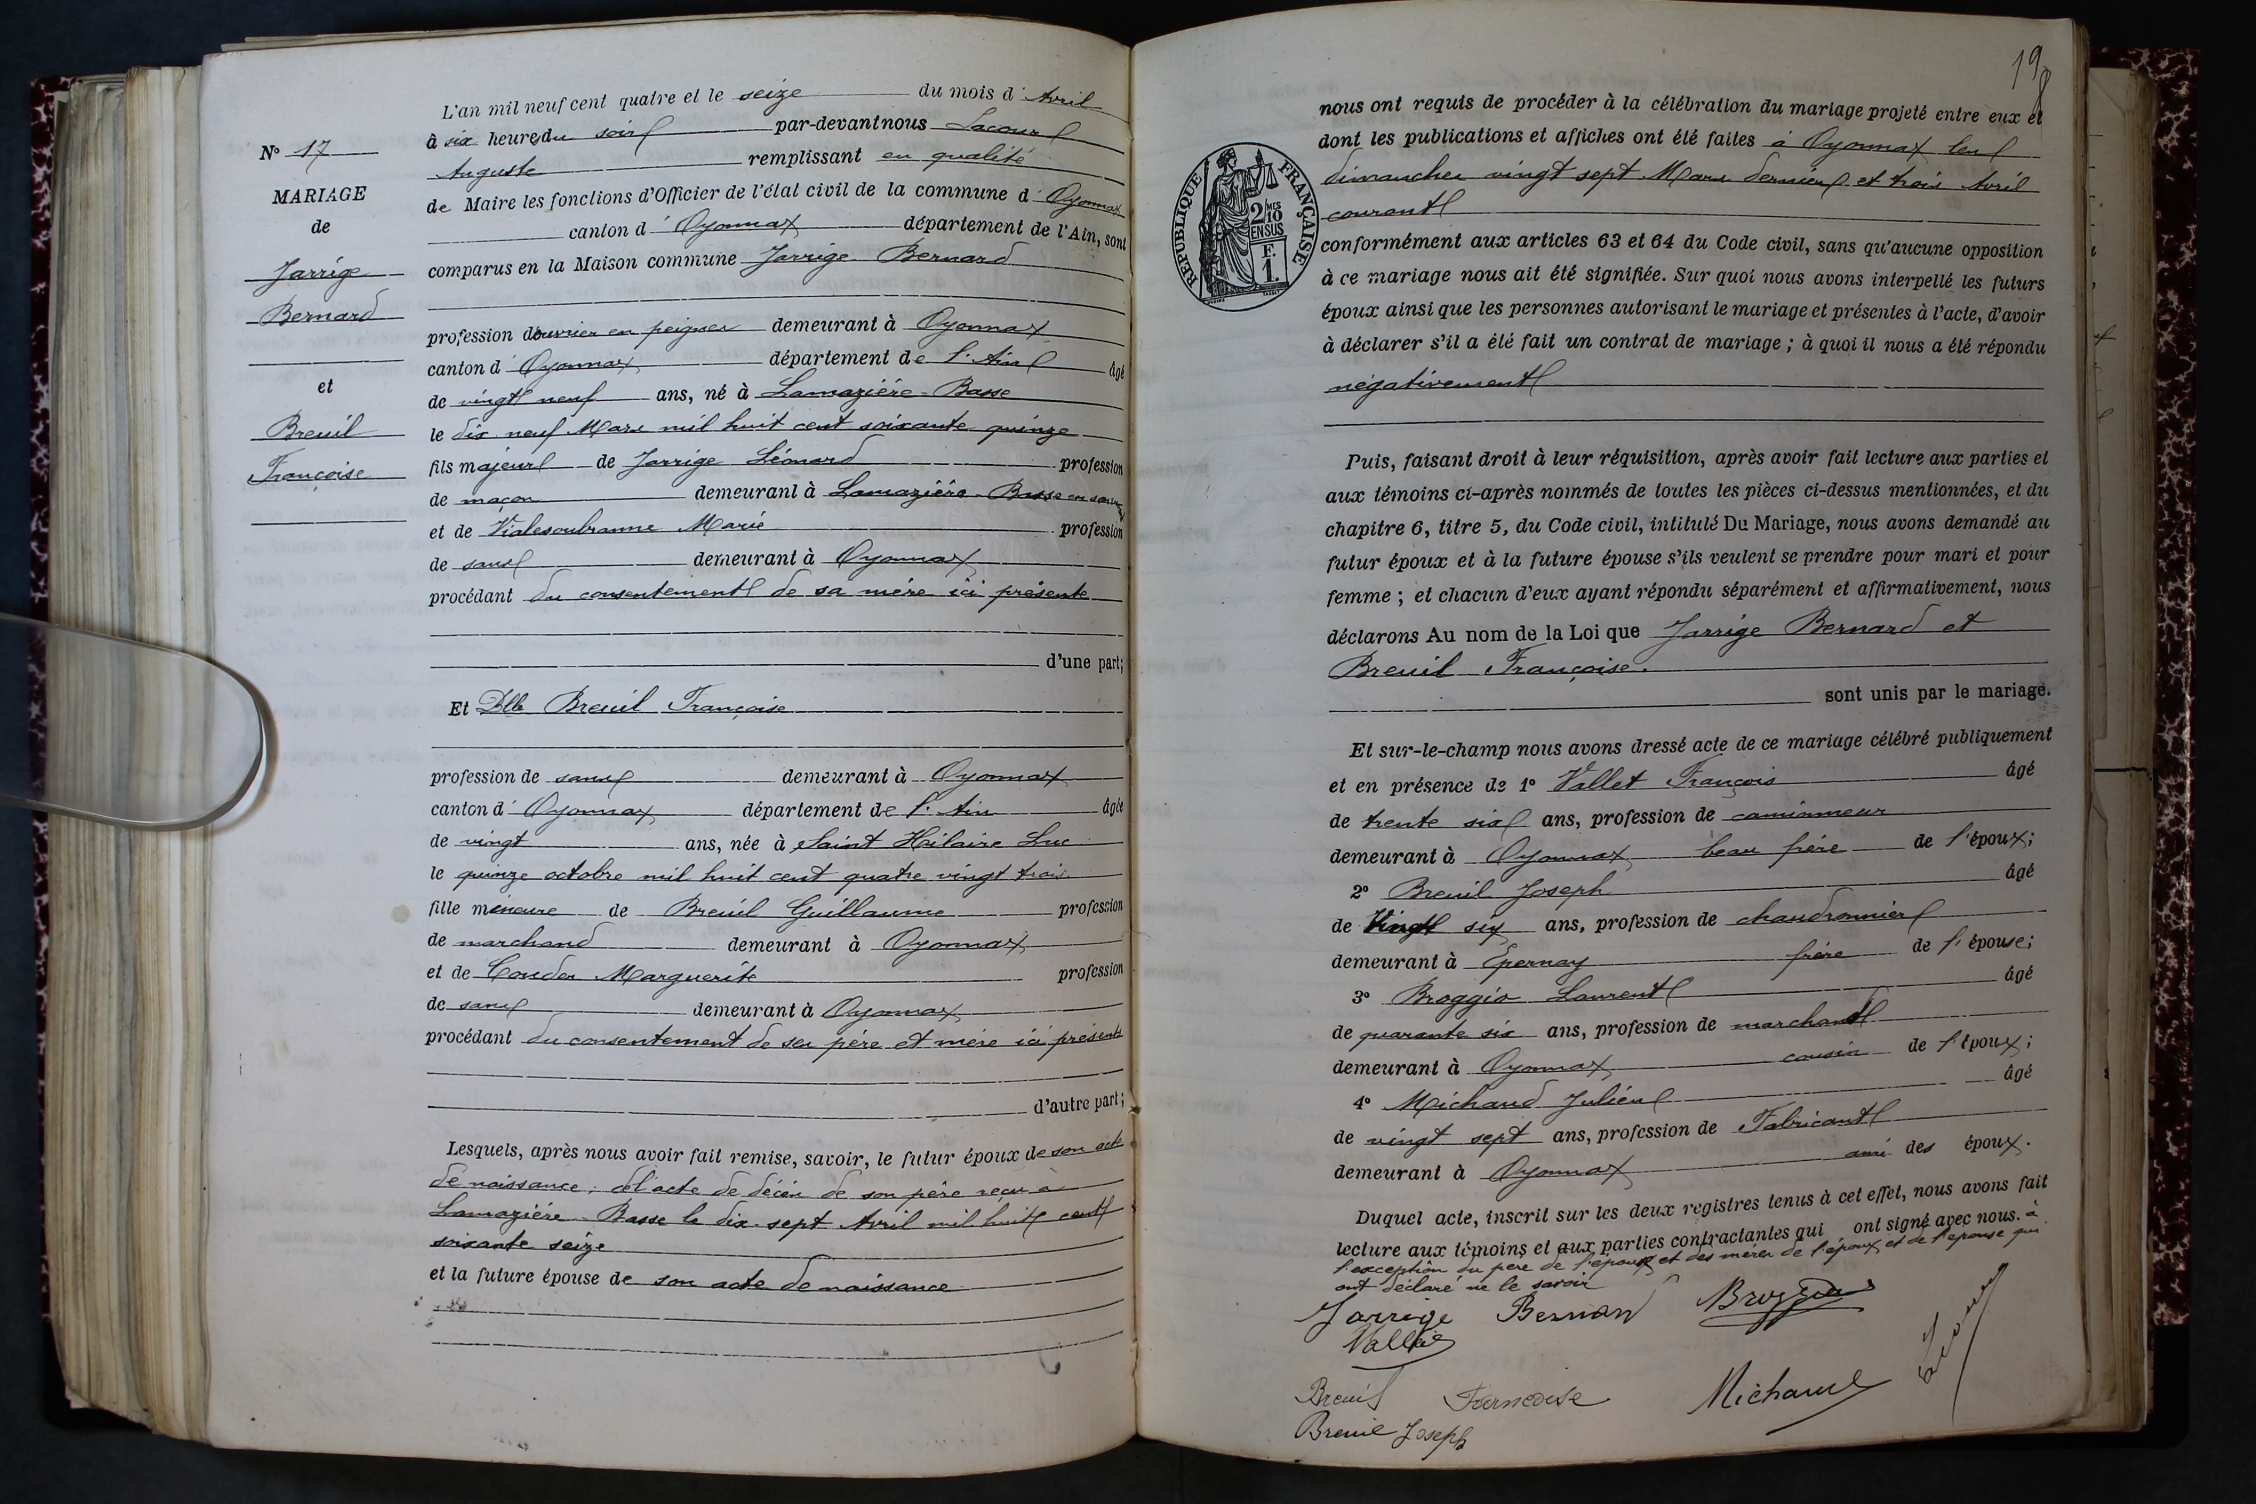 N° 17
MARIAGE
de
Jarrige
Bernard
et
Breuil
Françoise
L'an mil neuf cent quatre et le seize du mois d'Avril
à six heures du soir par-devant nous Lacour
Auguste remplissant en qualité
de Maire les fonctions d'Officier de l'état civil de la commune d'Oyonnax
canton d'Oyonnax département de l'Ain, sont
comparus en la Maison commune Jarrige Bernard
profession d'ouvrier en peignes demeurant à Oyonnax
canton d'Oyonnax département de l'Ain âgé
de vingt neuf ans, né à Lamazière-Basse
le dix neuf Mars mil huit cent soixante quinze
fils majeur de Jarrige Léonard profession
de maçon demeurant à Lamazière-Basse en son vivant
et de Vialesoubranne Marie profession
de sans demeurant à Oyonnax
procédant du consentement de sa mère ici présente
d'une part;
Et Dlle Breuil Françoise
profession de sans demeurant à Oyonnax
canton d'Oyonnax département de l'Ain âgée
de vingt ans, née à Saint Hilaire Luc
le quinze octobre mil huit cent quatre vingt trois
fille mineure de Breuil Guillaume profession
de marchand demeurant à Oyonnax
et de Couder Marguerite profession
de sans demeurant à Oyonnax
procédant du consentement de ses père et mère ici présents
d'autre part;
Lesquels, après nous avoir fait remise, savoir, le futur époux de son acte
de naissance, de l'acte de décès de son père reçu à
Lamazière-Basse le dix-sept Avril mil huit cent
soixante seize
et la future épouse de son acte de naissance
19
nous ont requis de procéder à la célébration du mariage projeté entre eux et
dont les publications et affiches ont été faites à Oyonnax les
dimanches vingt sept Mars dernier et trois Avril
courant
RÉPUBLIQUE FRANÇAISE
2/10 MES
EN SUS
F.
1.
conformément aux articles 63 et 64 du Code civil, sans qu'aucune opposition
à ce mariage nous ait été signifiée. Sur quoi nous avons interpellé les futurs
époux ainsi que les personnes autorisant le mariage et présentes à l'acte, d'avoir
à déclarer s'il a été fait un contrat de mariage; à quoi il nous a été répondu
négativement
Puis, faisant droit à leur réquisition, après avoir fait lecture aux parties et
aux témoins ci-après nommés de toutes les pièces ci-dessus mentionnées, et du
chapitre 6, titre 5, du Code civil, intitulé Du Mariage, nous avons demandé au
futur époux et à la future épouse s'ils veulent se prendre pour mari et pour
femme; et chacun d'eux ayant répondu séparément et affirmativement, nous
déclarons Au nom de la Loi que Jarrige Bernard et
Breuil Françoise.
sont unis par le mariage.
Et sur-le-champ nous avons dressé acte de ce mariage célébré publiquement
et en présence de 1° Vallet François âgé
de trente six ans, profession de camionneur
demeurant à Oyonnax beau frère de l'époux;
2° Breuil Joseph âgé
de vingt six ans, profession de chaudronnier
demeurant à Epernay frère de l'épouse;
3° Broggio Laurent âgé
de quarante six ans, profession de marchand
demeurant à Oyonnax cousin de l'époux;
4° Michaud Julien âgé
de vingt sept ans, profession de Fabricant
demeurant à Oyonnax ami des époux.
Duquel acte, inscrit sur les deux registres tenus à cet effet, nous avons fait
lecture aux témoins et aux parties contractantes qui ont signé avec nous. à
l'exception du père de l'épouse et des mères de l'époux et de l'épouse qui
ont déclaré ne le savoir
Jarrige Bernard Broggio
Vallet
Breuil Francoise Michaud
Lacour
Breuil Joseph